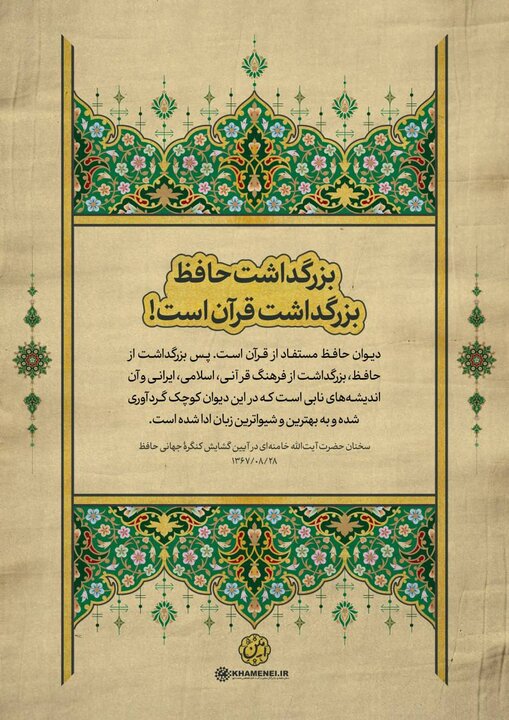 بزرگداشت حافظ
بزرگداشت قرآن است!
دیوان حافظ مستفاد از قرآن است. پس بزرگداشت از
حافظ، بزرگداشت از فرهنگ قرآنی، اسلامی، ایرانی و آن
اندیشه‌های نابی است که در این دیوان کوچک گردآوری
شده و به بهترین و شیواترین زبان ادا شده است.
سخنان حضرت آیت‌الله خامنه‌ای در آیین گشایش کنگرهٔ جهانی حافظ
۱۳۶۷/۰۸/۲۸
KHAMENEI.IR